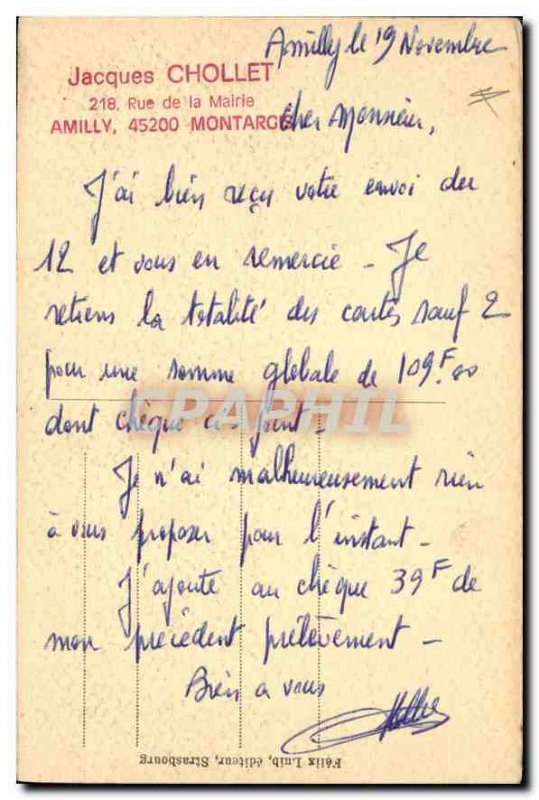 Amilly le 19 Novembre
Jacques CHOLLET
218, Rue de la Mairie
AMILLY, 45200 MONTARGIS
Cher Monsieur,
J'ai bien reçu votre envoi du
12 et vous en remercie - Je
retiens la totalité des cartes sauf 2
pour une somme globale de 109F.00
dont chèque ci-joint -
CPAPHIL
Je n'ai malheureusement rien
à vous proposer pour l'instant -
J'ajoute au chèque 39F de
mon précédent prélèvement -
Bien a vous
Félix Luib, éditeur, Strasbourg